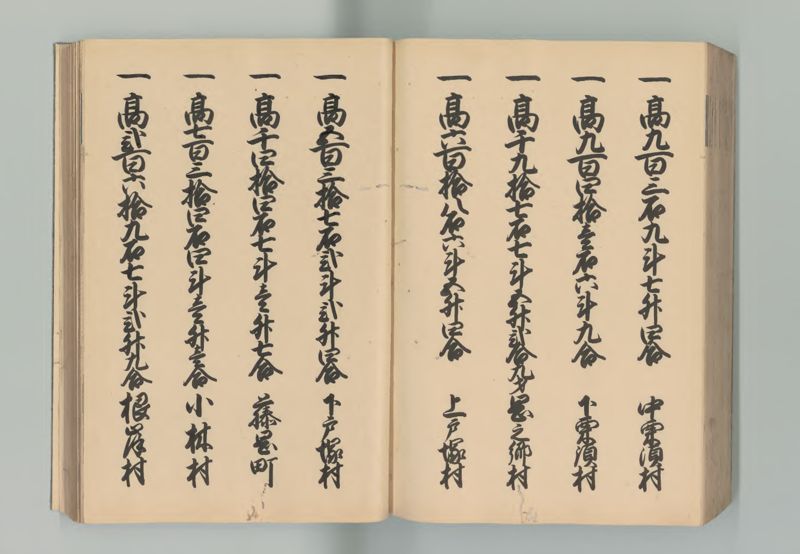 一高九百三石九斗七升四合 中栗須村
一高九百四拾壱石六斗九合 下栗須村
一高千九拾七石七斗五升弐合九才 岡之郷村
一高六百拾八石六斗五升四合 上戸塚村
一高五百三拾七石弐斗弐升四合 下戸塚村
一高千四拾四石七斗壱升七合 藤岡町
一高七百三拾四石四斗壱升壱合 小林村
一高弐百六拾九石七斗弐升九合 根岸村